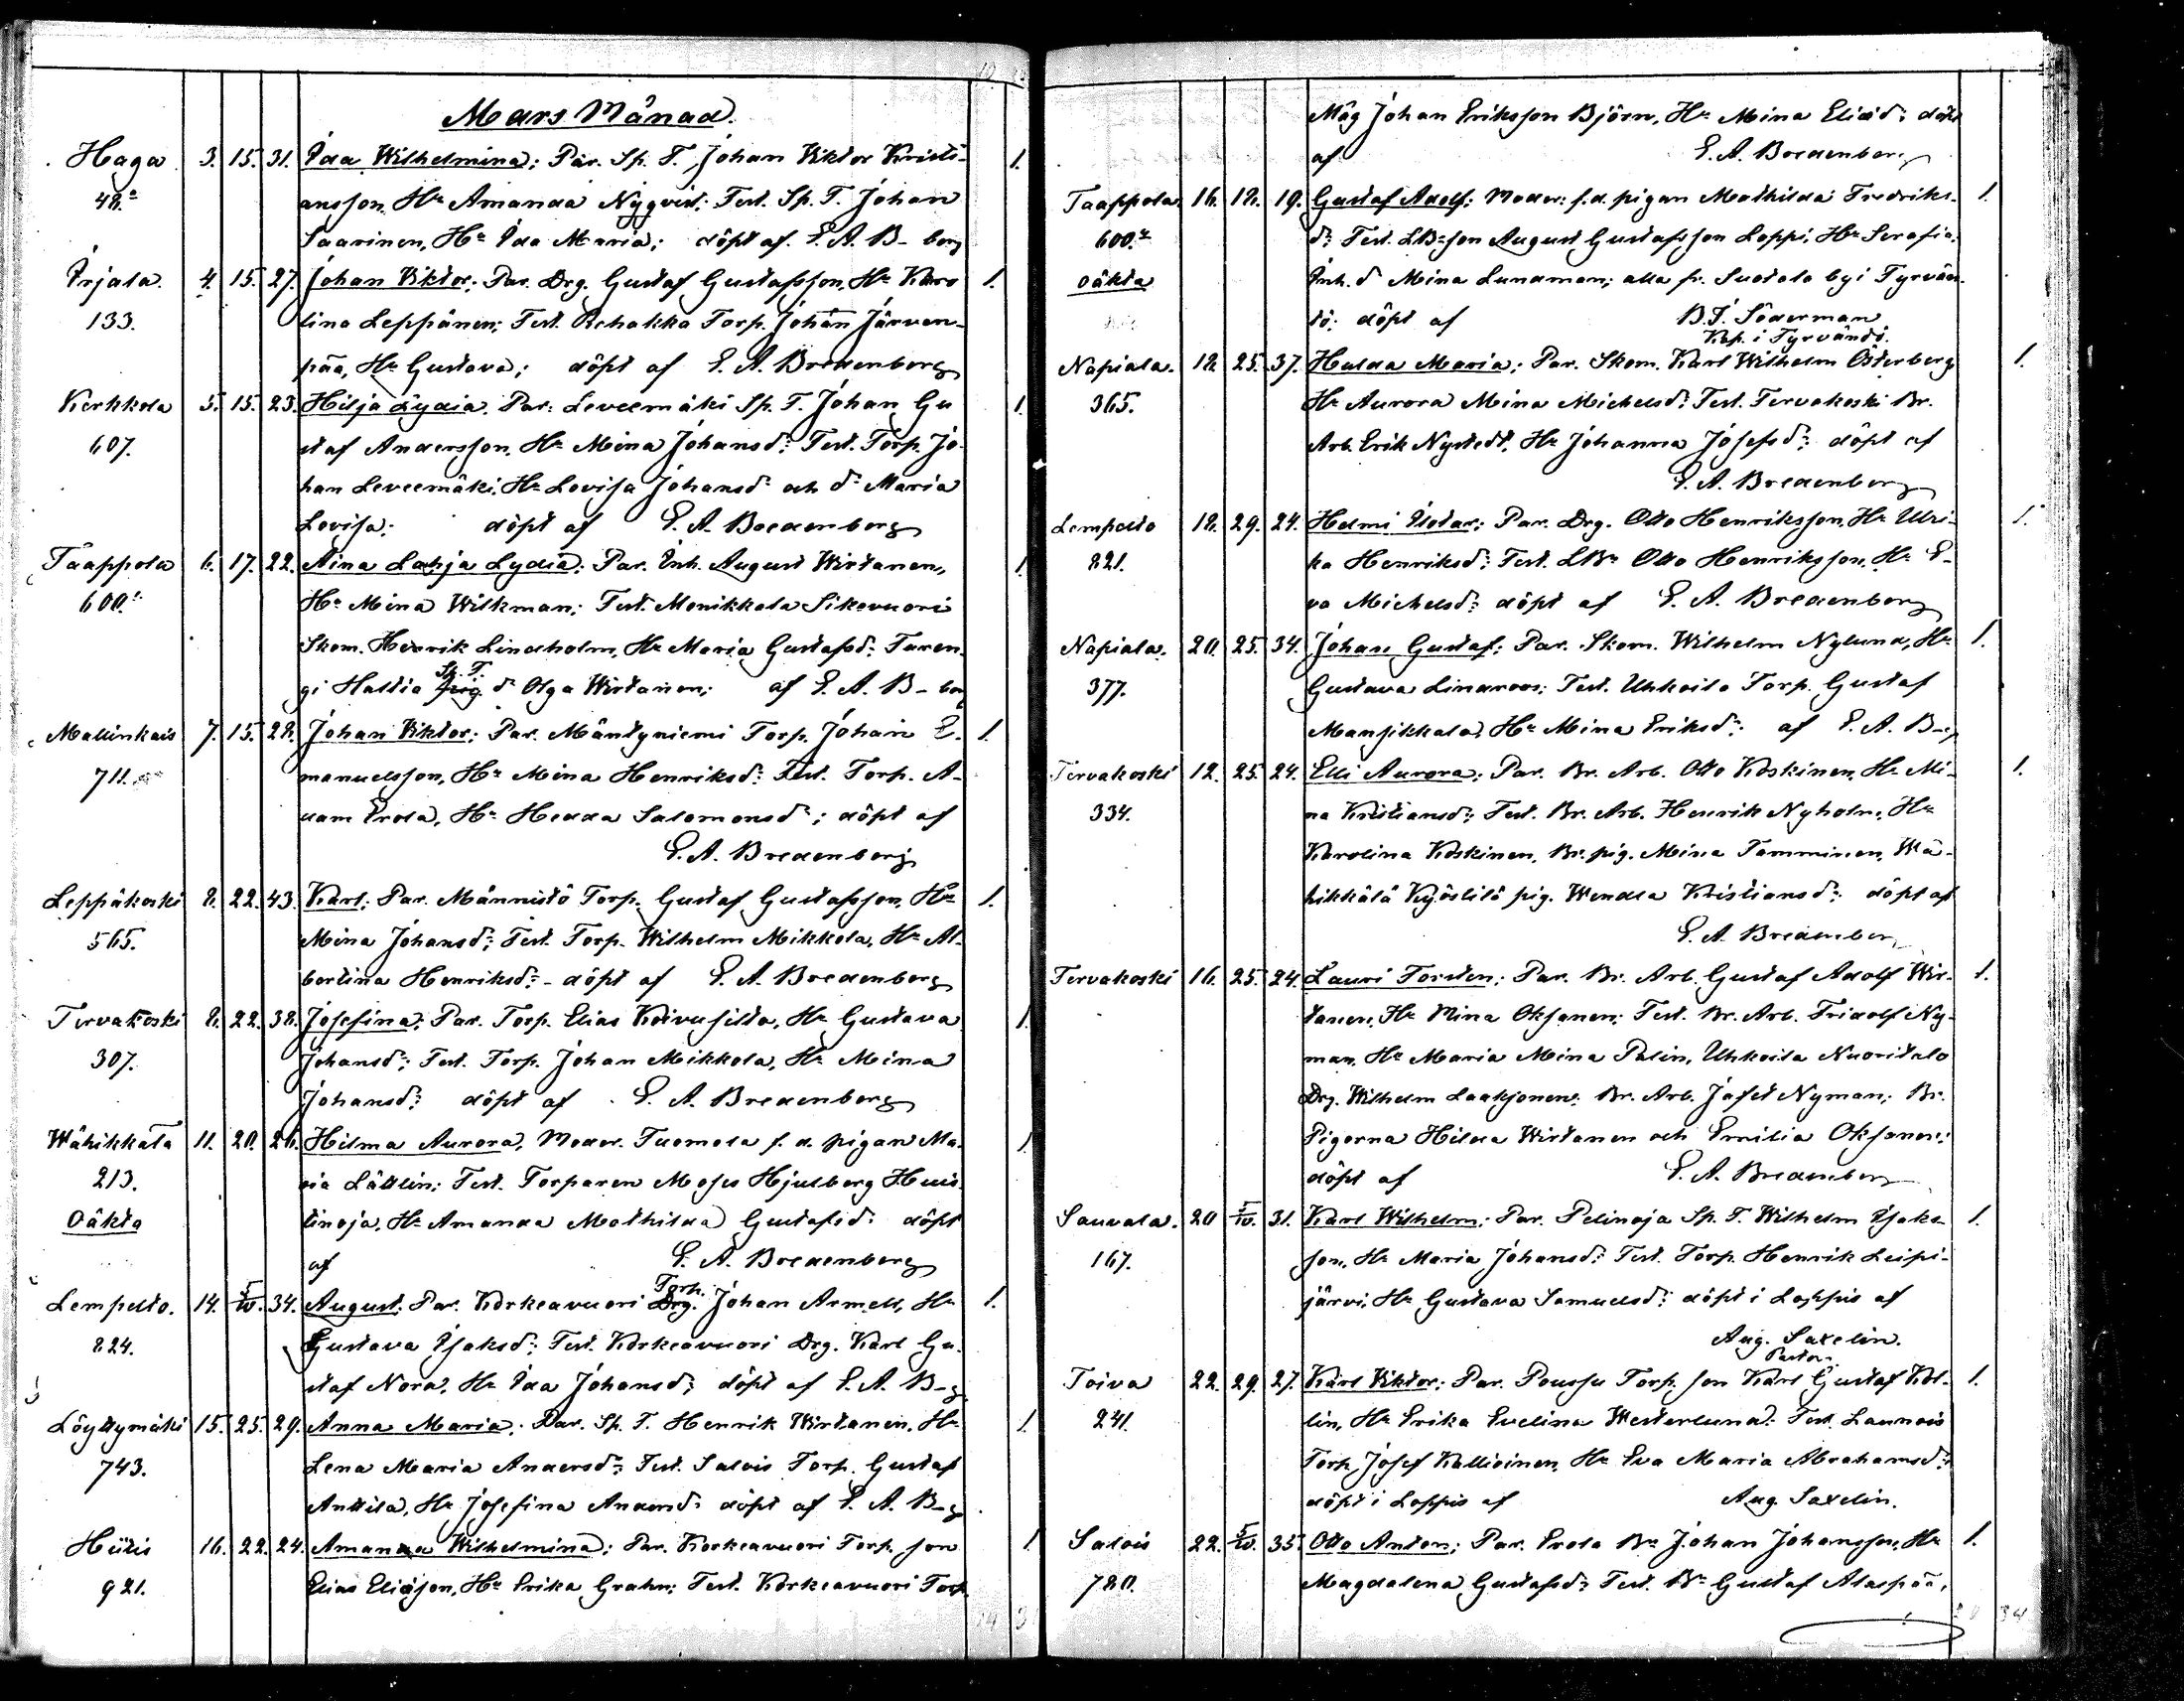 Mars Månad.
Haga 3. 15. 31. Ida Wilhelmina; Par. Sp. T. Johan Viktor Kristi- 1.
48.a ansson, Hu Amanda Nyqvist; Test. Sp. T. Johan
Saarinen, Hu Ida Maria; döpt af E. A. B-berg
Irjala. 4. 15. 27. Johan Viktor; Par. Drg. Gustaf Gustafsson, Hu Karo 1.
133. lina Leppänen; Test. Rehakka Torp. Johan Järven-
pää, Hu Gustava; döpt af E. A. Bredenberg
Kerkkola 5. 15. 23. Hilja Lydia. Par. Leveemäki Sp. T. Johan Gu 1.
607. staf Andersson, Hu Mina Johansd:r Test. Torp. Jo-
han Leveemäki, Hu Lovisa Johansd:r och dr Maria
Lovisa; döpt af E. A. Bredenberg
Taappola 6. 17. 22. Aina Lahja Lydia; Par. Inh. August Wirtanen, 1.
600. Hu Mina Wilkman; Test. Monikkala Sikovuori
Skom. Henrik Lindholm, Hu Maria Gustafsd:r Turen-
gi Hattia Sp. T. dr Olga Wirtanen; af E. A. B-berg
Mallinkais 7. 15. 28. Johan Viktor; Par. Mäntyniemi Torp. Johan E- 1.
711. manuelsson, Hu Mina Henriksd:r Test. Torp. A-
dam Erola, Hu Hedda Salomonsd:r; döpt af
E. A. Bredenberg
Leppäkoski 8. 22. 43. Karl; Par. Männistö Torp. Gustaf Gustafsson, Hu 1.
565. Mina Johansd:r; Test. Torp. Wilhelm Mikkola, Hu Al-
bertina Henriksd:r - döpt af E. A. Bredenberg
Tervakoski 8. 22. 38. Josefina; Par. Torp. Elias Koivusilta, Hu Gustava 1.
307. Johansd:r; Test. Torp. Johan Mikkola, Hu Mina
Johansd:r döpt af E. A. Bredenberg
Wähikkälä 11. 20. 26. Hilma Aurora, Moder. Tuomola f. d. pigan Ma- 1.
213. ria Lättlin; Test. Torparen Moses Hjulberg Huis-
Oäkta tinoja, Hu Amanda Mathilda Gustafsd:r döpt
af E. A. Bredenberg
Torp.
Lempelto. 14. 5/IV. 34. August; Par. Korkeavuori Drg. Johan Armell, Hu 1.
824. Gustava Isaksd:r; Test. Korkeavuori Drg. Karl Gu-
staf Nora, Hu Ida Johansd:r; döpt af E. A. B-g
Löyttymäki 15. 25. 29. Anna Maria; Par. Sp. T. Henrik Wirtanen, Hu 1.
743. Lena Maria Andersd:r; Test. Salois Torp. Gustaf
Anttila, Hu Josefina Andersd:r döpt af E. A. B-g
Hiitis 16. 22. 24. Amanda Wilhelmina; Par. Korkeavuori Torp. son 1.
921. Elias Eliasson, Hu Erika Grahn; Test. Korkeavuori Torp.
Måg Johan Eriksson Björn, Hu Mina Eliæd:r döpt
af E. A. Bredenberg
Taappola. 16. 18. 19. Gustaf Adolf; Moder: f. d. pigan Mathilda Fredriks- 1.
600. d:r; Test. LBdeson August Gustafsson Loppi, Hu Serafia,
oäkta Inh. dr Mina Lundman; alla fr. Suotala by i Tyrvän-
tö; döpt af B. F. Söderman
Kap. i Tyrväntö.
Napiala. 18. 25. 37. Hulda Maria; Par. Skom. Karl Wilhelm Österberg 1.
365. Hu Aurora Mina Michelsd:r Test. Tervakoski Br.
Arb. Erik Nystedt, Hu Johanna Josefsd:r döpt af
E. A. Bredenberg
Lempelto 18. 29. 24. Helmi Ilotar; Par. Drg. Otto Henriksson, Hu Ulri- 1.
821. ka Henriksd:r; Test. LBde Otto Henriksson, Hu E-
va Michelsd:r döpt af E. A. Bredenberg
Napiala. 20. 25. 34. Johan Gustaf; Par. Skom. Wilhelm Nylund, Hu 1.
377. Gustava Lindroos; Test. Uhkoila Torp. Gustaf
Mansikkala, Hu Mina Eriksd:r af E. A. B-g
Tervakoski 12. 25. 24. Elli Aurora; Par. Br. Arb. Otto Koskinen, Hu Mi- 1.
334. na Kristiansd:r; Test. Br. Arb. Henrik Nyholm, Hu
Karolina Koskinen, Br. pig. Mina Tamminen, Wä-
hikkälä Kyöstilä pig. Wendla Kristiansd:r döpt af
E. A. Bredenberg
Tervakoski 16. 25. 24. Lauri Torsten; Par. Br. Arb. Gustaf Adolf Wir- 1.
tanen, Hu Mina Oksanen; Test. Br. Arb. Fridolf Ny-
man, Hu Maria Mina Palin, Uhkoila Nuoritalo
Drg. Wilhelm Laaksonen; Br. Arb. Jafet Nyman; Br.
Pigorna Hilda Wirtanen och Emilia Oksanen;
döpt af E. A. Bredenberg
Sauvala. 20 5/IV. 31. Karl Wilhelm; Par. Pelinoja Sp. T. Wilhelm Isaks- 1.
167. son, Hu Maria Johansd:r Test. Torp. Henrik Leipi-
järvi, Hu Gustava Samuelsd:r döpt i Loppis af
Aug. Saxelin.
Pastor.
Toiva 22. 29. 27. Karl Viktor; Par. Poussu Torp. son Karl Gustaf Kol- 1.
241. lin, Hu Erika Evelina Westerlund; Test. Launois
Torp. Josef Kallioinen, Hu Eva Maria Abrahamsd:r
döpt i Loppis af Aug. Saxelin.
Salois 22. 5/IV. 35. Otto Anton; Par. Erola Bde Johan Johansson, Hu 1.
780. Magdalena Gustafsd:r Test. Bde Gustaf Alaspää,